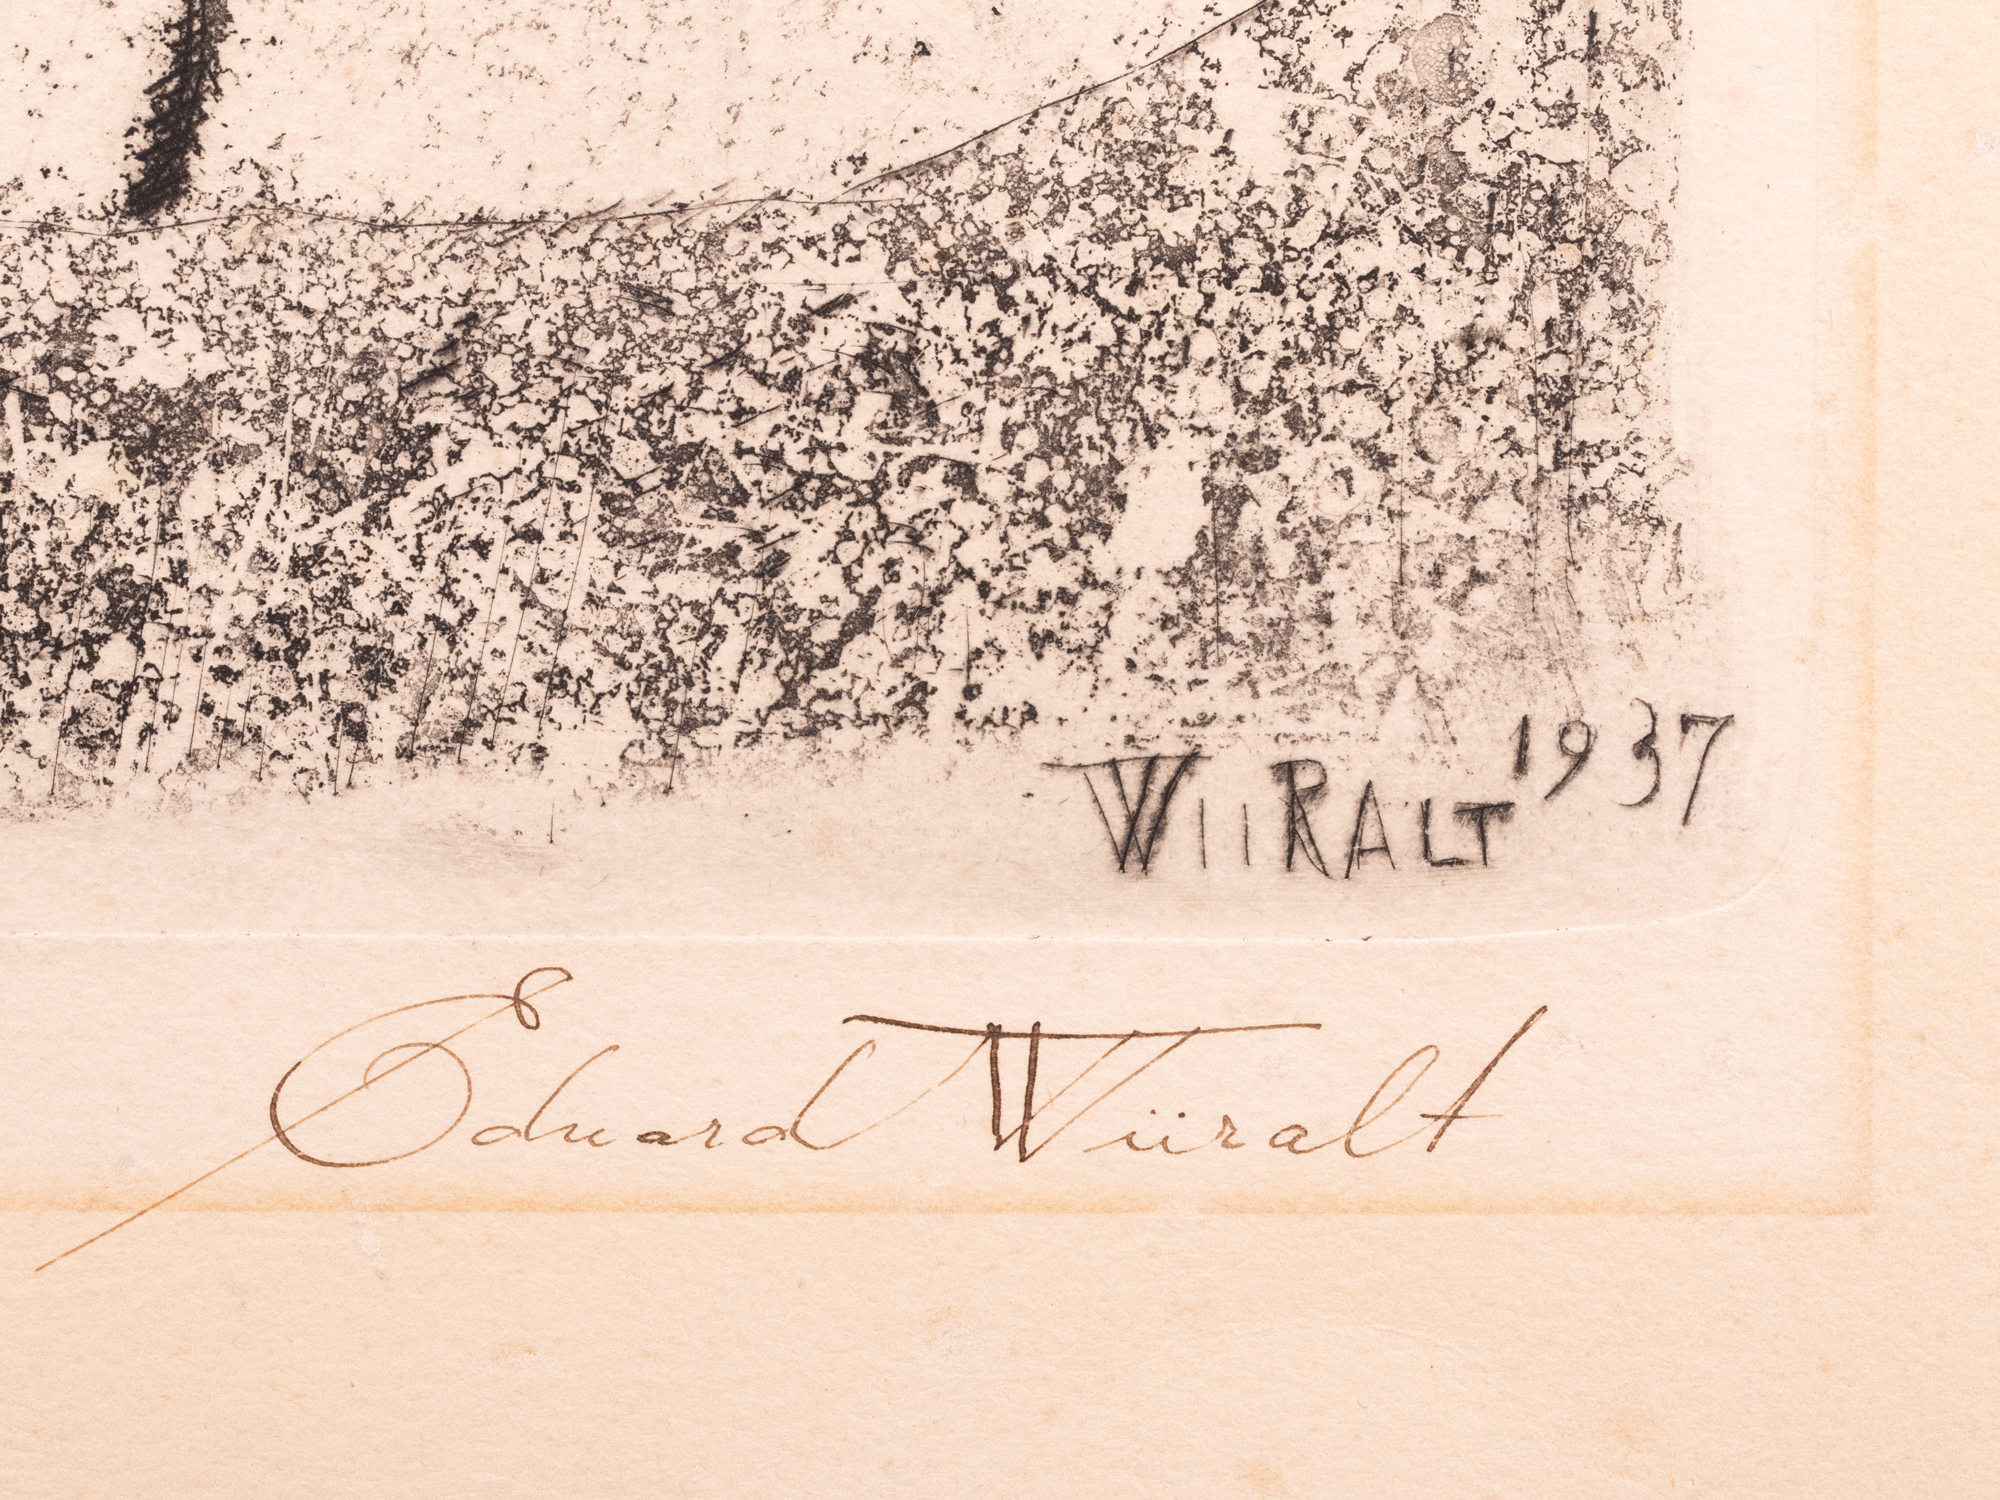 WIIRALT 1937
Eduard Wiiralt